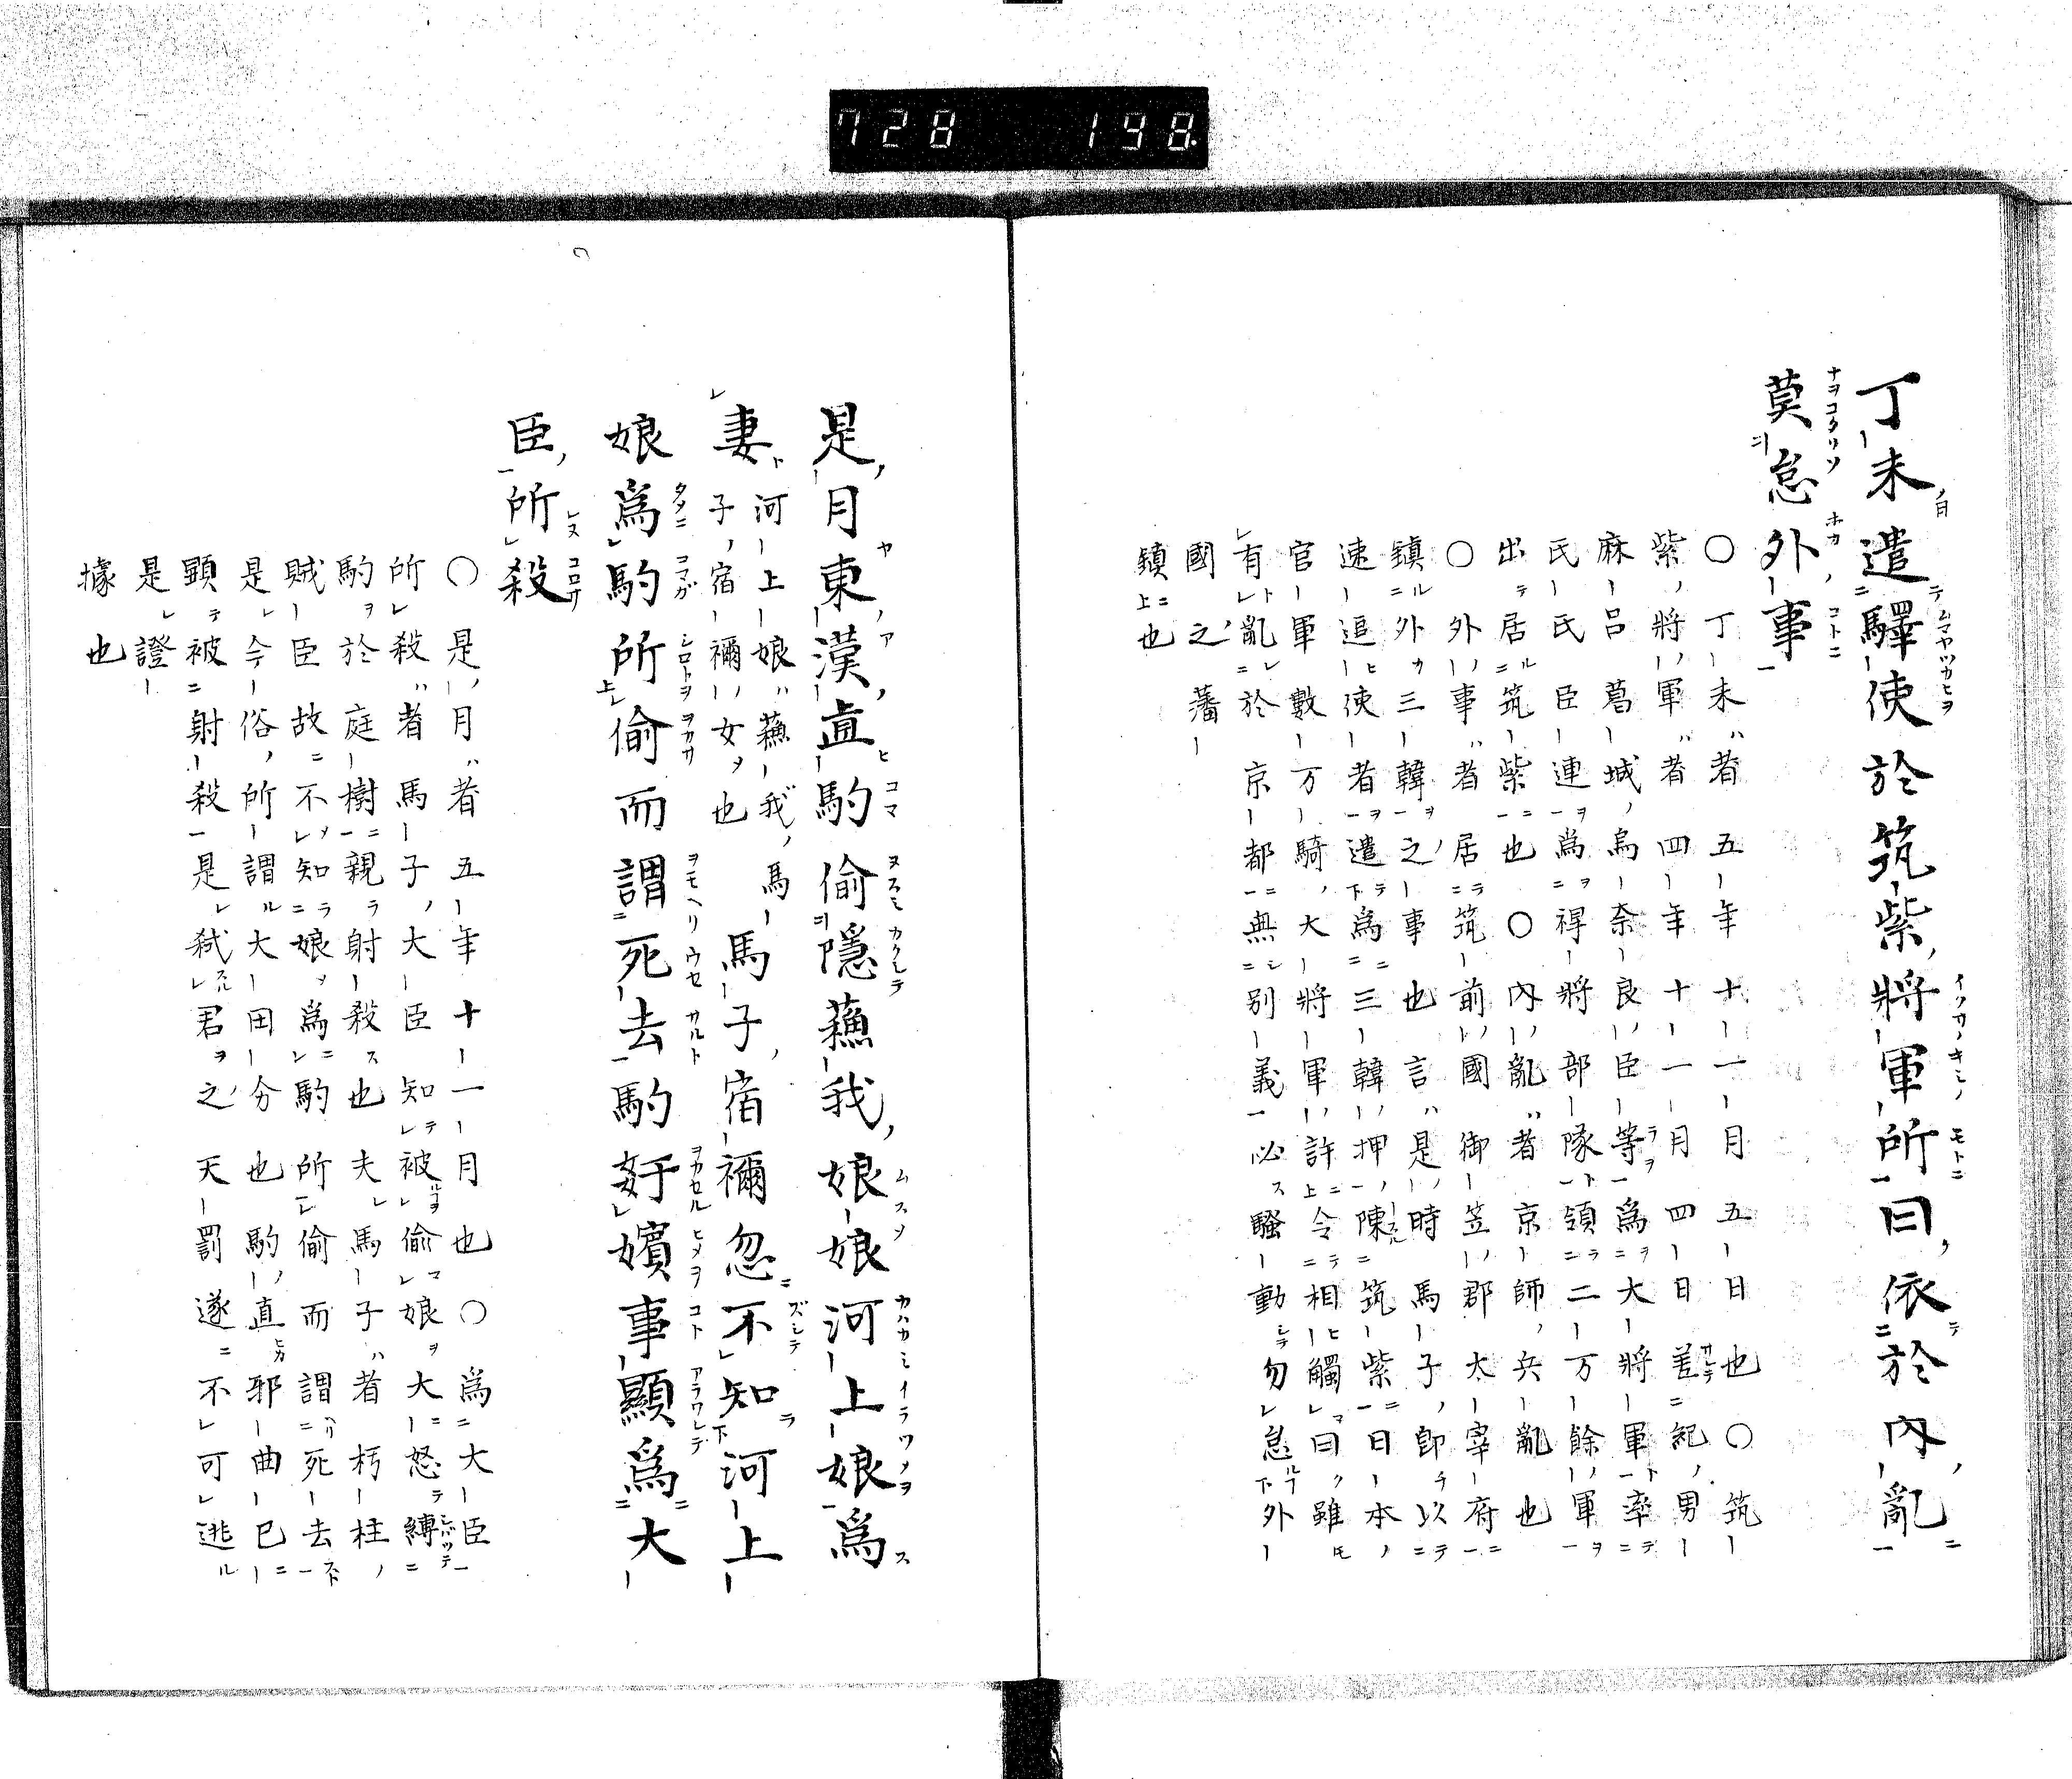 728 198.
丁未遣驛使於筑紫將軍所曰依於內亂
莫怠外事
〇丁未者五年十一月五日也〇筑
紫將軍者四年十一月四日差紀男
麻呂葛城烏奈良臣等爲大將軍率
氏氏臣連爲裨將部隊領二万餘軍
出居筑紫也〇內亂者京師兵亂也
〇外事者居筑前國御笠郡太宰府
鎮外三韓之事也言是時馬子即以
速追使者遣爲三韓押陳筑紫日本
官軍數万騎大將軍許令相觸曰雖
有亂於京都無別義必騷動勿怠外
國之藩
鎮也
是月東漢直駒偷隱蘓我娘娘河上娘爲
妻河上娘蘓我馬
子宿禰女也馬子宿禰忽不知河上
娘爲駒所偷而謂死去駒姧嬪事顯爲大
臣所殺
〇是月者五年十一月也〇爲大臣
所殺者馬子大臣知被偷娘大怒縛
駒於庭樹親射殺也夫馬子者朽柱
賊臣故不知娘爲駒所偷而謂死去
是今俗所謂大田分也駒直邪曲已
顕被射殺是弒君之天罰遂不可逃
是證
據也